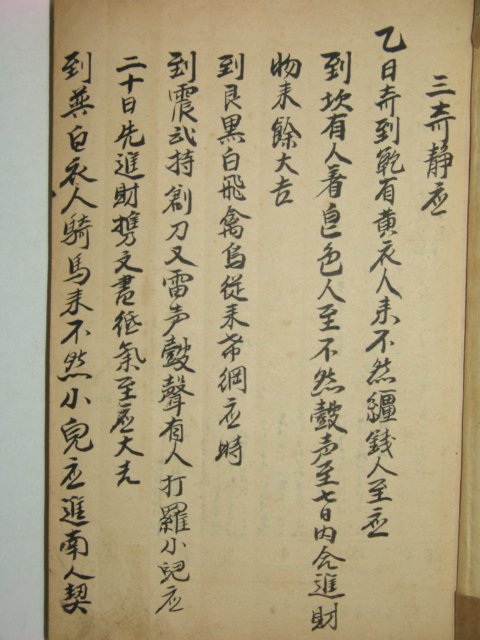 三奇静应
乙日奇到乾有黄衣人来不然繮錢人至应
到坎有人着皀色人至不然鼓声至七日内合進財
物来餘大吉
到艮黒白飛禽鸟従来希網应時
到震武持劍刀又雷声鼓聲有人打羅小兒应
二十日先進財携文書紙氣至应大吉
到巽白衣人騎馬来不然小兒应進南人契